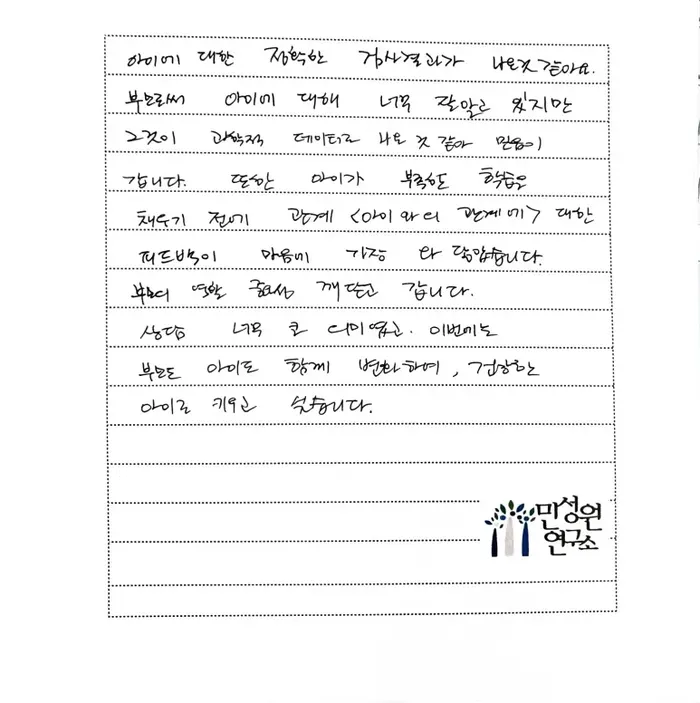 아이에 대한 정확한 검사결과가 나온것 같아요.
부모로써 아이에 대해 너무 잘알고 있지만
그것이 과학적 데이터로 나온 것 같아 믿음이
갑니다. 또한 아이가 부족한 학습을
채우기 전에 관계 <아이와의 관계에> 대한
피드백이 마음에 가장 와 닿았습니다.
부모의 역할 중요성 깨닫고 갑니다.
상담 너무 큰 의미였고. 이번에는
부모도 아이도 함께 변화하여, 건강한
아이로 키우고 싶습니다.
민성원
연구소